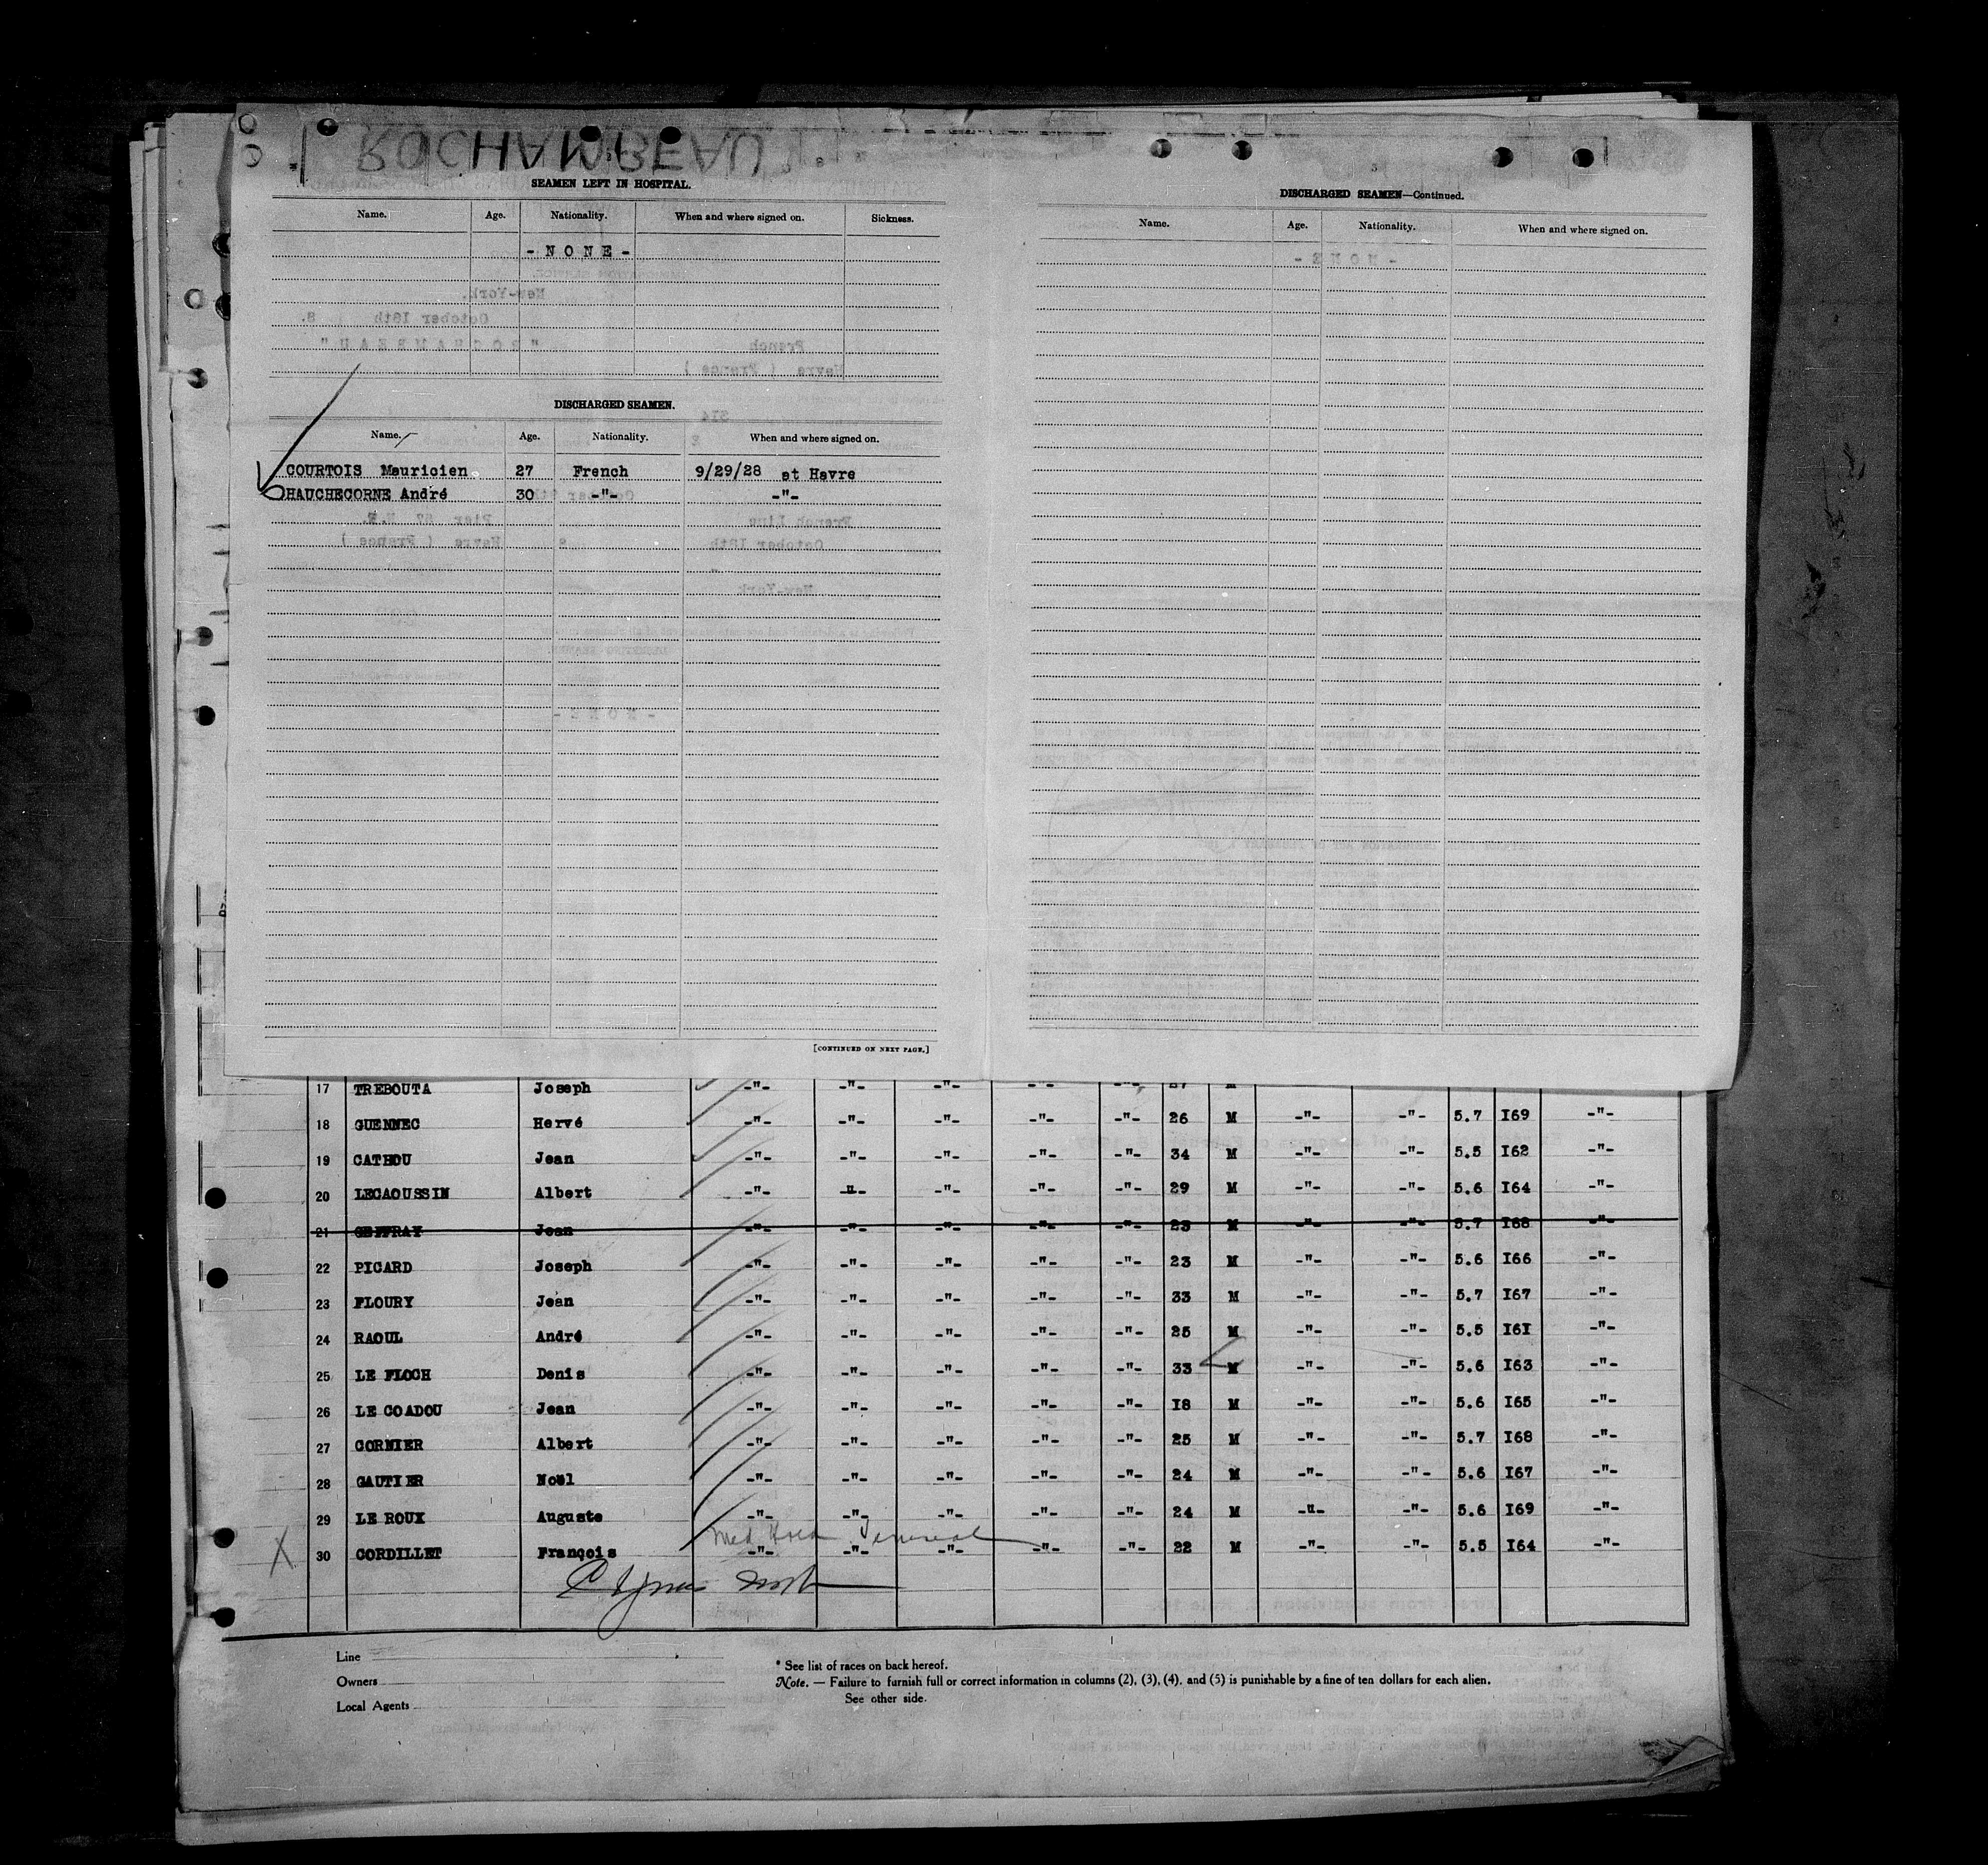 ROCHAMBEAU
SEAMEN LEFT IN HOSPITAL.
Name. Age. Nationality. When and where signed on. Sickness.
- N O N E -
DISCHARGED SEAMEN.
Name. Age. Nationality. When and where signed on.
COURTOIS Mauricien 27 French 9/29/28 at Havre
HAUCHECORNE André 30 -"- -"-
[CONTINUED ON NEXT PAGE.]
3
DISCHARGED SEAMEN—Continued.
Name. Age. Nationality. When and where signed on.
- N O N E -
17 TREBOUTA Joseph -"- -"- -"- -"- -"- 27 M
18 GUENNEC Hervé -"- -"- -"- -"- -"- 26 M -"- -"- 5.7 I69 -"-
19 CATHOU Jean -"- -"- -"- -"- -"- 34 M -"- -"- 5.5 I62 -"-
20 LECAOUSSIN Albert -"- -"- -"- -"- -"- 29 M -"- -"- 5.6 I64 -"-
21 GEFFRAY Jean -"- -"- -"- -"- -"- 23 M -"- -"- 5.7 I68 -"-
22 PICARD Joseph -"- -"- -"- -"- -"- 23 M -"- -"- 5.6 I66 -"-
23 FLOURY Jean -"- -"- -"- -"- -"- 33 M -"- -"- 5.7 I67 -"-
24 RAOUL André -"- -"- -"- -"- -"- 25 M -"- -"- 5.5 I6I -"-
25 LE FLOCH Denis -"- -"- -"- -"- -"- 33 M -"- -"- 5.6 I63 -"-
26 LE COADOU Jean -"- -"- -"- -"- -"- I8 M -"- -"- 5.6 I65 -"-
27 CORNIER Albert -"- -"- -"- -"- -"- 25 M -"- -"- 5.7 I68 -"-
28 GAUTIER Noël -"- -"- -"- -"- -"- 24 M -"- -"- 5.6 I67 -"-
29 LE ROUX Auguste -"- -"- -"- -"- -"- 24 M -"- -"- 5.6 I69 -"-
Med Hold
X 30 CORDILLET François -"- -"- -"- -"- -"- 22 M -"- -"- 5.5 I64 -"-
Line
Owners
Local Agents
* See list of races on back hereof.
Note. — Failure to furnish full or correct information in columns (2), (3), (4), and (5) is punishable by a fine of ten dollars for each alien.
See other side.